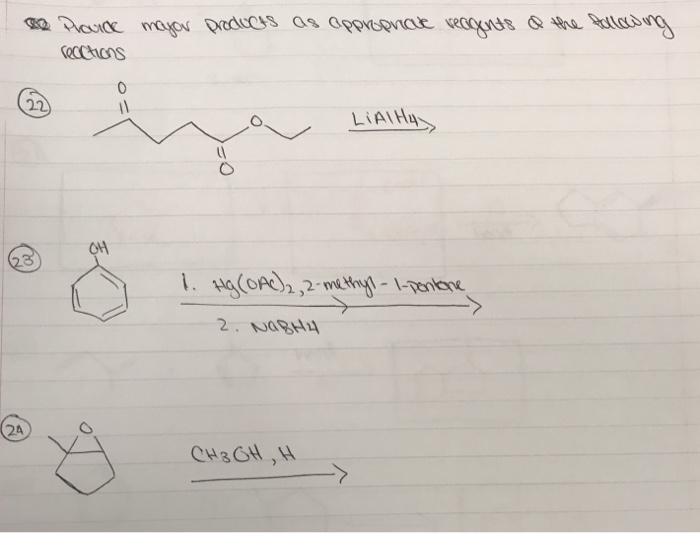 Provide major products as appropriate reagents @ the following
reactions
22
O
O
O
LiAlH4
23
OH
1. Hg(OAc)2, 2-methyl-1-pentene
2. NaBH4
24
O
CH3OH, H